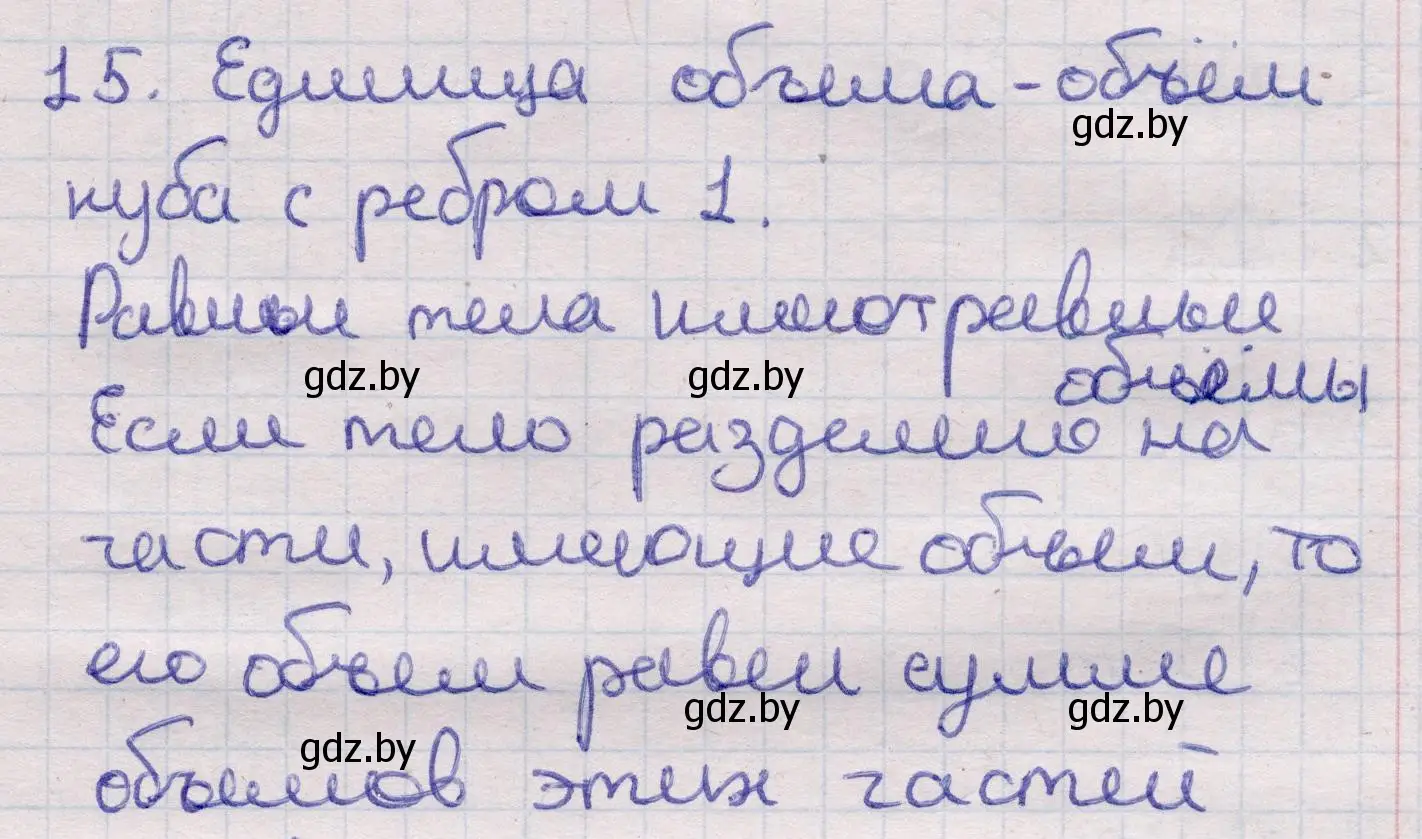 15. Единица объема - объём
gdz.by
куба с ребром 1.
Равные тела имеют равные
объёмы
gdz.by gdz.by
Если тело разделено на
части, имеющие объем, то
его объем равен сумме
gdz.by gdz.by
gdz.by
объемов этих частей